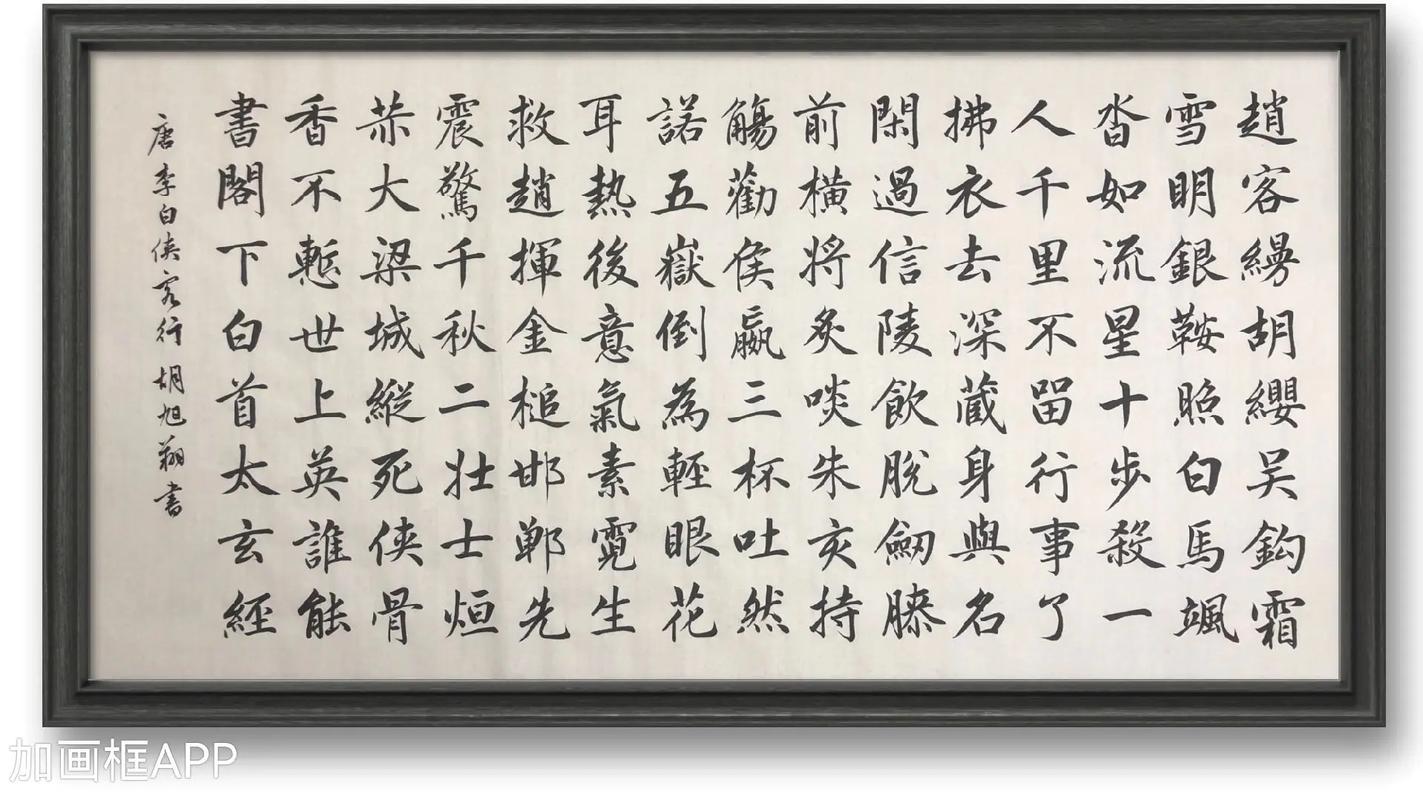 趙客縵胡纓吳鈎霜
雪明銀鞍照白馬颯
沓如流星十步殺一
人千里不留行事了
拂衣去深藏身與名
閑過信陵飲脫劒膝
前橫將炙啖朱亥持
觴勸侯嬴三杯吐然
諾五嶽倒為輕眼花
耳熱後意氣素霓生
救趙揮金槌邯鄲先
震驚千秋二壯士烜
赫大梁城縱死俠骨
香不慙世上英誰能
書閣下白首太玄經
唐李白俠客行胡旭翔書
加画框APP